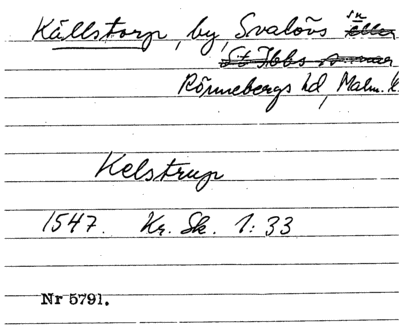 Källstorp, by, Svalövs sn
Rönnebergs hd, Malm. l.
Kelstrup
1547. Kr. Sk. 1:33
Nr 5791.